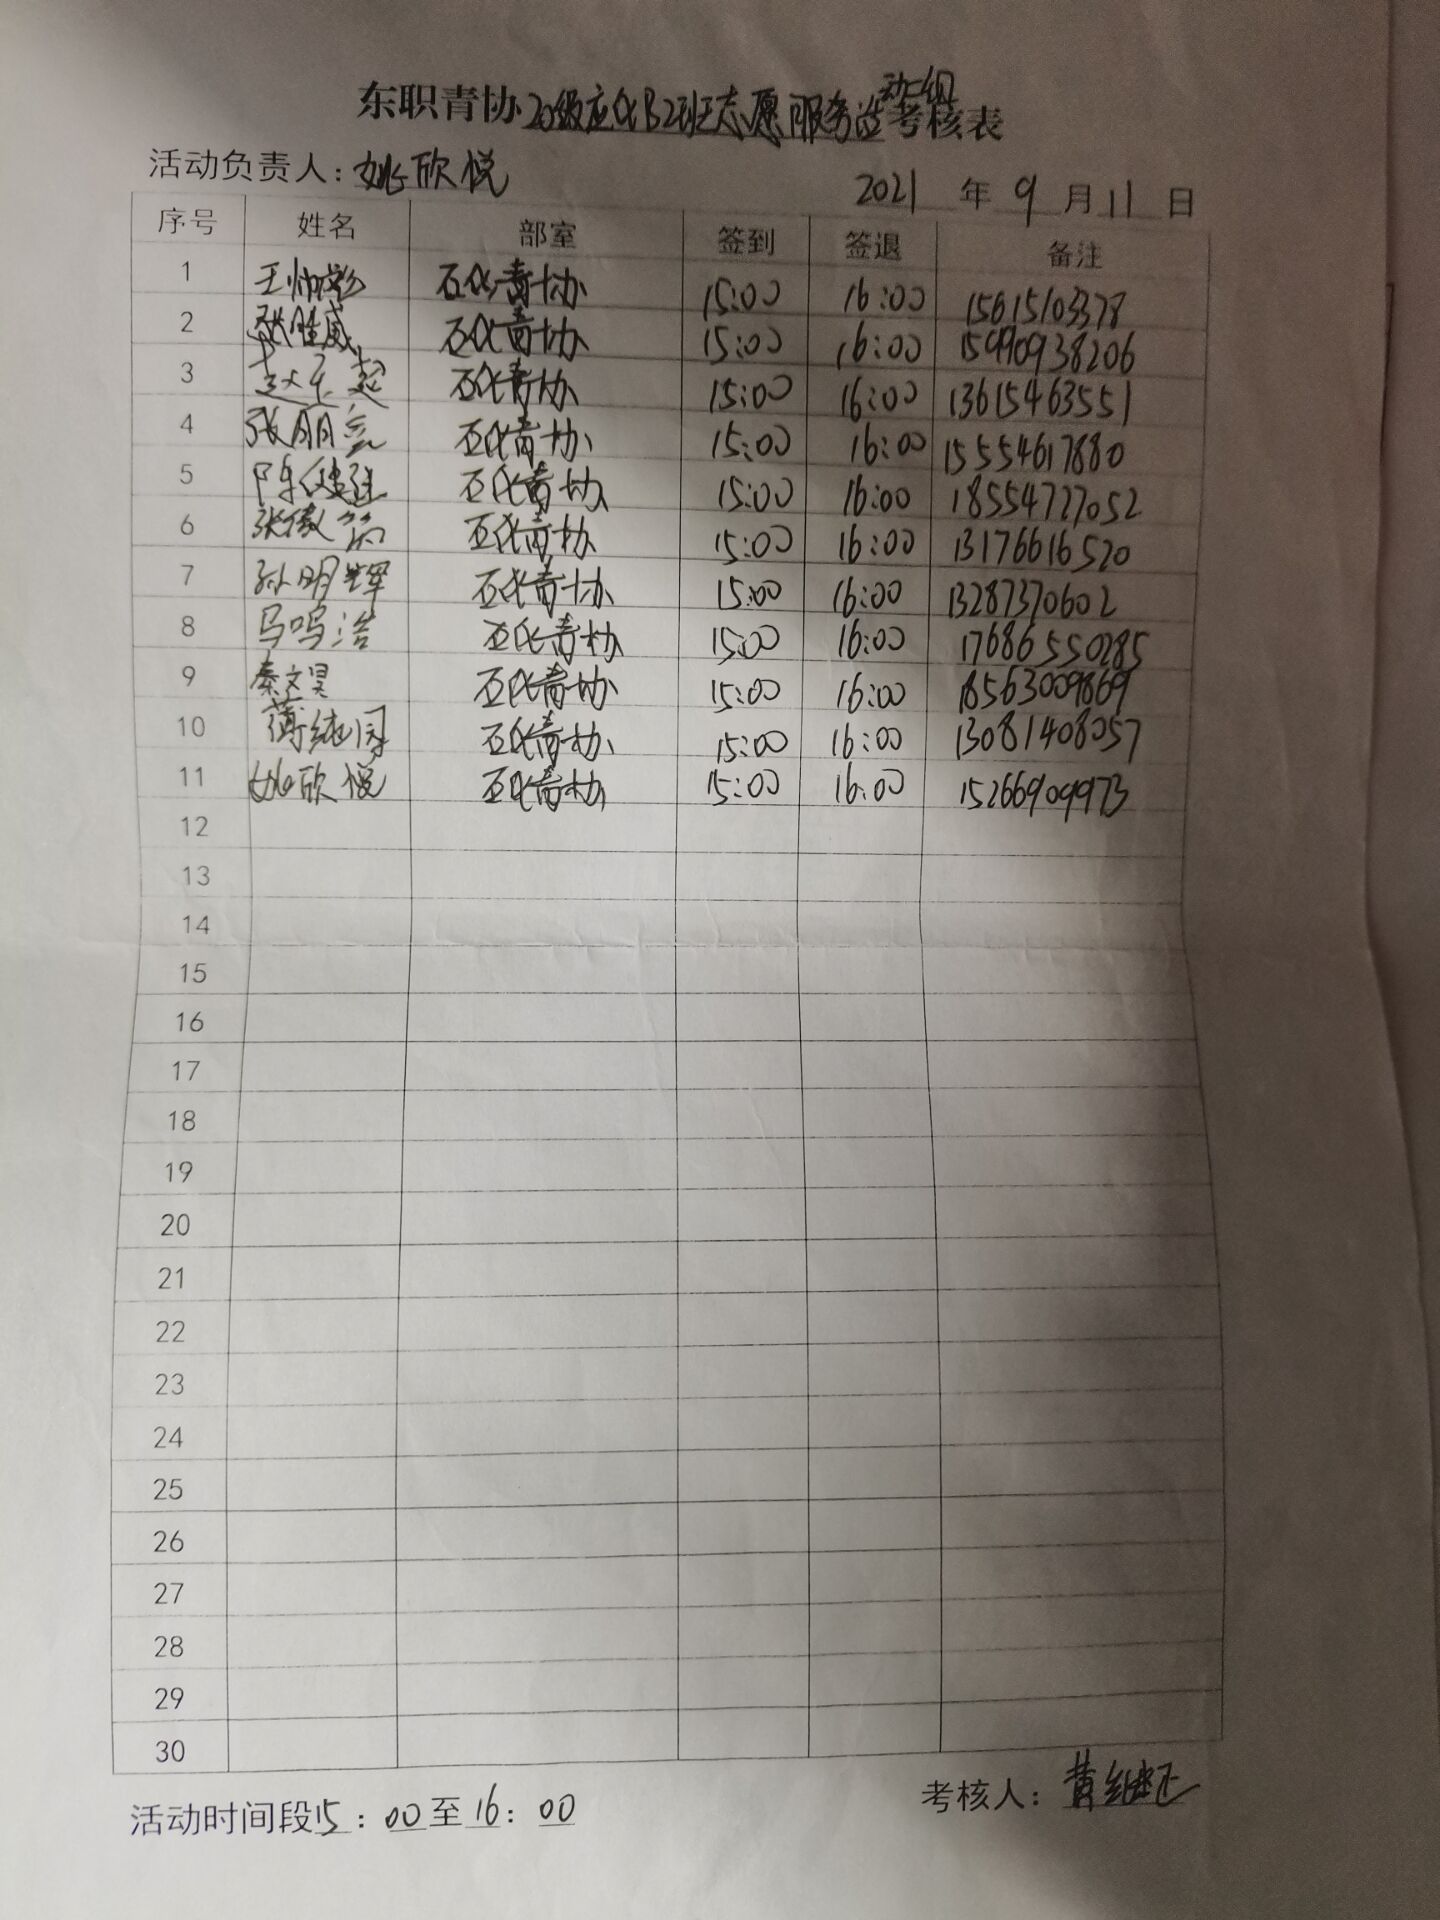 东职青协20级应化B2班志愿服务活动二组考核表
活动负责人：姚欣悦 2021 年 9 月 11 日
序号 姓名 部室 签到 签退 备注
1 王帅彬 石化青协 15:00 16:00 15615103378
2 张胜威 石化青协 15:00 16:00 15990938206
3 赵乐超 石化青协 15:00 16:00 13615463551
4 张丽 石化青协 15:00 16:00 15554617880
5 陈健 石化青协 15:00 16:00 18554727052
6 张傲 石化青协 15:00 16:00 13176616520
7 孙明辉 石化青协 15:00 16:00 13287370602
8 马鸣浩 石化青协 15:00 16:00 17686550285
9 秦文昊 石化青协 15:00 16:00 18563009869
10 薄纯 石化青协 15:00 16:00 13081408057
11 姚欣悦 石化青协 15:00 16:00 15266909973
12
13
14
15
16
17
18
19
20
21
22
23
24
25
26
27
28
29
30
考核人：黄继正
活动时间段15：00至16：00